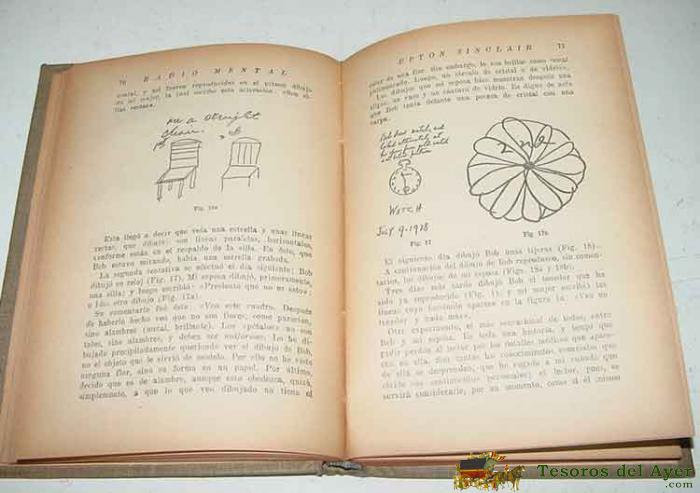 70 RADIO MENTAL
mental, y así fueron reproducidas en el mismo dibujo
de mi mujer, la cual escribe esta aclaración: «Son si-
llas
see a straight
chair.
Fig. 16a
Ésta llegó a decir que veía una estrella y unas líneas
rectas, que dibujó; son líneas paralelas, horizontales,
conforme están en el respaldo de la silla. En donde
Bob estuvo mirando, había una estrella grabada.
La segunda tentativa se efectuó el día siguiente: Bob
dibujó su reloj (Fig. 17). Mi esposa dibujó, primeramente,
una silla; y luego escribió: «Presiento que no es esto»;
e hizo otro dibujo (Fig. 17a).
Su comentario fué éste: «Veo este cuadro. Después
de haberlo hecho veo que no son flores, como parecían,
sino alambres (metal, brillante). Los «pétalos» no son
tales, sino alambres, y deben ser uniformes. Lo he di-
bujado precipitadamente queriendo ver el dibujo de Bob,
no el objeto que le sirvió de modelo. Por ello no he visto
ninguna flor, sino su forma en un papel. Por último,
decido que es de alambre, aunque esto obedezca, quizá,
simplemente, a que lo que veo dibujado no tiene el
UPTON SINCLAIR 71
color de una flor. Sin embargo, lo veo brillar como metal
pulimentado. Luego, un círculo de cristal o de vidrio».
Los dibujos que mi esposa hizo muestran después una
elipse, un vaso y un cántaro de vidrio. Es digno de nota
que Bob tenía delante una pecera de cristal con una
carpa.
WATCH
July 9-1928
Fig. 17
Fig 17a
El siguiente día dibujó Bob unas tijeras (Fig. 18).
A continuación del dibujo de Bob reproduzco, sin comen-
tarios, los dibujos de mi esposa (Figs. 18a y 18b).
Tres días más tarde dibujó Bob el tenedor que ha
sido ya reproducido (Fig. 1), y mi mujer escribió las
líneas que también aparecen en la figura 1a «Veo un
tenedor y nada más».
Otro experimento, el más sensacional de todos, entre
Bob y mi esposa. Es toda una historia, y tengo que
pedir perdón al lector por los detalles médicos que apare-
cen en ella. Son tantos los conocimientos esenciales que
de ella se desprenden, que he rogado a mi cuñado que
olvide sus sentimientos personales; el lector, pues, se
servirá considerarle, por un momento, como si él mismo
Tesoros del Ayer
.com